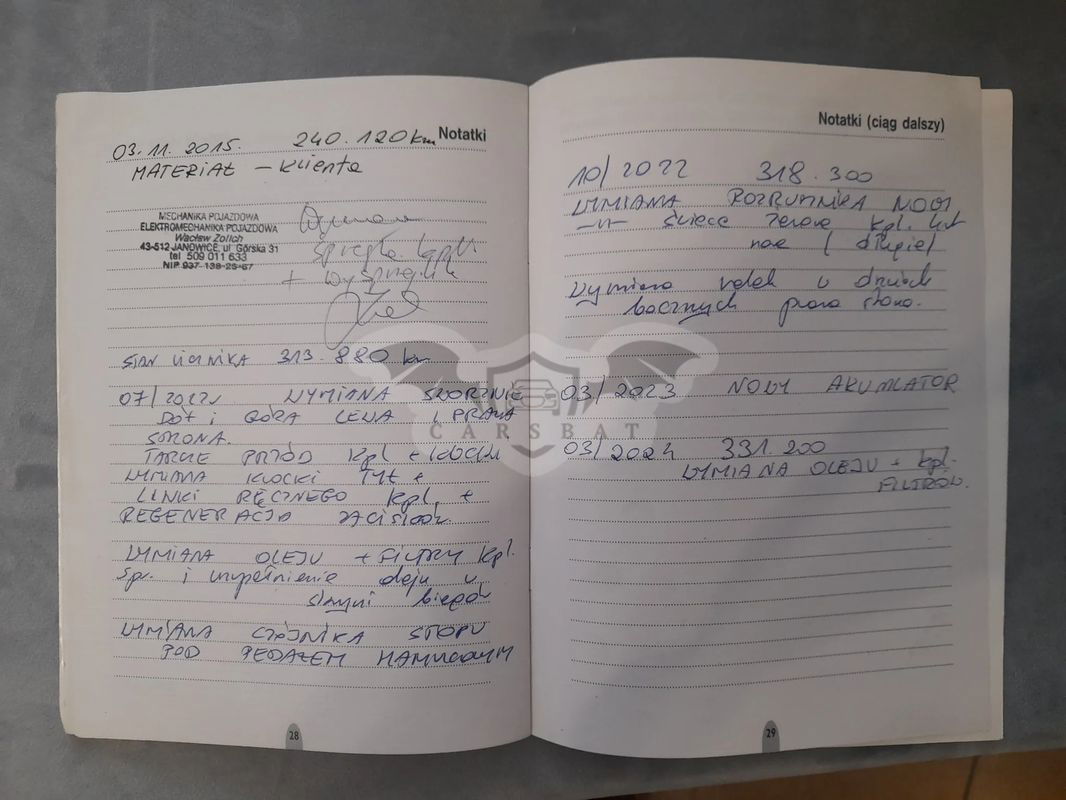 Notatki
03.11.2015. 240.120 km
MATERIAŁ – Klienta
MECHANIKA POJAZDOWA
ELEKTROMECHANIKA POJAZDOWA
Wacław Zolich
43-512 JANOWICE, ul. Górska 31
tel. 509 011 633
NIP 937-138-25-67
Wymiana
sprzęgła kpl.
+ wysprzęglik
STAN LICZNIKA 313.880 km
07/2022r WYMIANA SWORZNIE
DÓŁ i GÓRA LEWA i PRAWA
STRONA.
TARCZE PRZÓD kpl + KLOCKI
WYMIANA KLOCKI TYŁ +
LINKI RĘCZNEGO kpl. +
REGENERACJA ZACISKÓW.
WYMIANA OLEJU + FILTRY kpl.
Spr. i uzupełnienie oleju w
skrzyni biegów
WYMIANA CZUJNIKA STOPU
POD PEDAŁEM HAMULCOWYM
28
Notatki (ciąg dalszy)
10/2022 318.300
WYMIANA ROZRUSZNIKA NOWY
–||– świece żarowe kpl.
(długie)
Wymiana rolek w drzwiach
bocznych prawa strona.
03/2023 NOWY AKUMLATOR
03/2024 331.200
WYMIANA OLEJU + kpl.
FILTRÓW.
29
CARSBAT